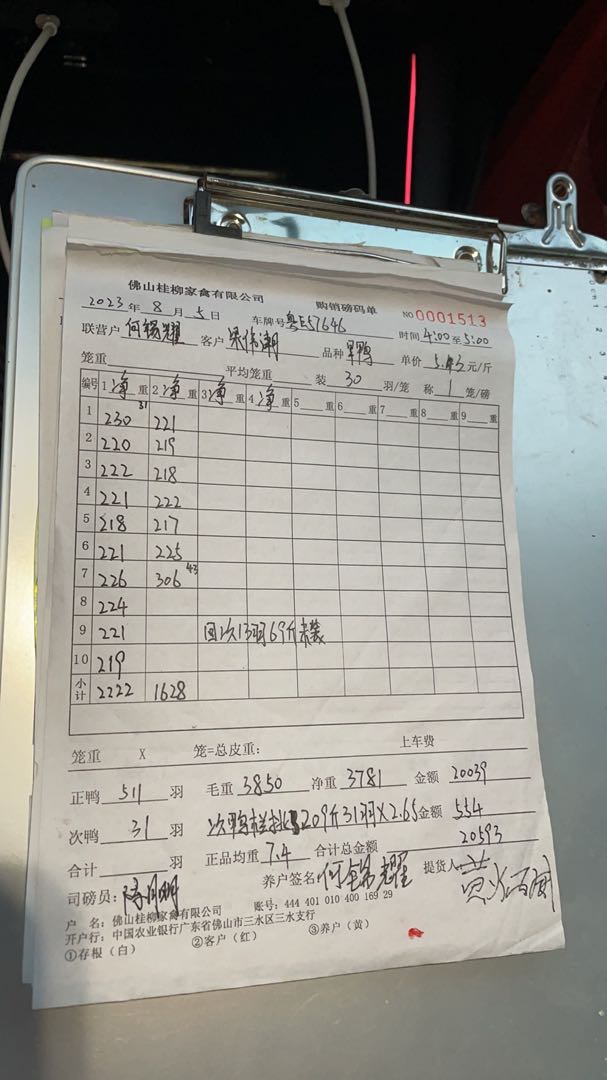 佛山桂柳家禽有限公司 购销磅码单 NO 0001513
2023年 8 月 5 日 车牌号 粤E57646 时间 4:00 至 5:00
联营户 何锦耀 客户 梁伟潮 品种 旱鸭 单价 5.43 元/斤
笼重 平均笼重 装 30 羽/笼 称 1 笼/磅
编号 1 净 重 2 净 重 3 净 重 4 净 重 5 重 6 重 7 重 8 重 9 重
1 230 31 221
2 220 219
3 222 218
4 221 222
5 218 217
6 221 225
7 226 306 43
8 224
9 221 回次13羽69斤未装
10 219
小计 2222 1628
笼重 X 笼=总皮重: 上车费
正鸭 511 羽 毛重 3850 净重 3781 金额 20039
次鸭 31 羽 次鸭 209斤31羽X2.65 金额 554
合计 羽 正品均重 7.4 合计总金额 20593
司磅员: 养户签名 何锦耀 提货人
户 名: 佛山桂柳家禽有限公司 账号: 444 401 010 400 169 29
开户行: 中国农业银行广东省佛山市三水区三水支行
①存根（白） ②客户（红） ③养户（黄）